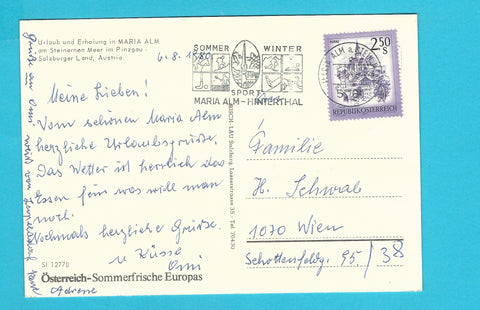 Urlaub und Erholung in MARIA ALM
am Steinernen Meer im Pinzgau
Salzburger Land, Austria
6.8.1980
Meine Lieben!
Vom schönen Maria Alm
herzliche Urlaubsgrüße.
Das Wetter ist herrlich das
Essen fein was will man
noch.
Nochmals herzliche Grüße
u Küsse
Omi
SI 12770
Österreich-Sommerfrische Europas
Adresse
SOMMER WINTER
SPORT
MARIA ALM-HINTERTHAL
2.50 S
REPUBLIK ÖSTERREICH
Salzburg
Tel. 76430
Familie
H. Schwab
1070 Wien
Schottenfeldg. 95/38